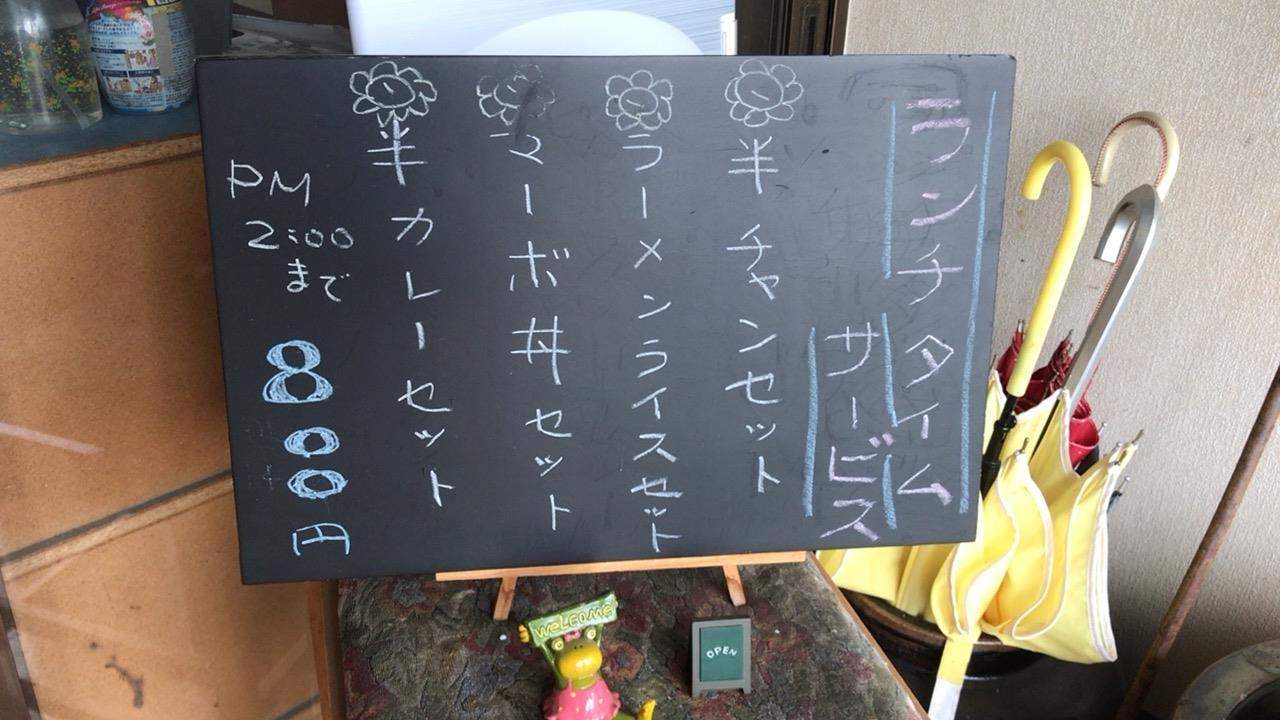 ランチタイム
サービス
半チャンセット
ラーメンライスセット
マーボ丼セット
半カレーセット
PM
2:00
まで
800円
WELCOME
OPEN